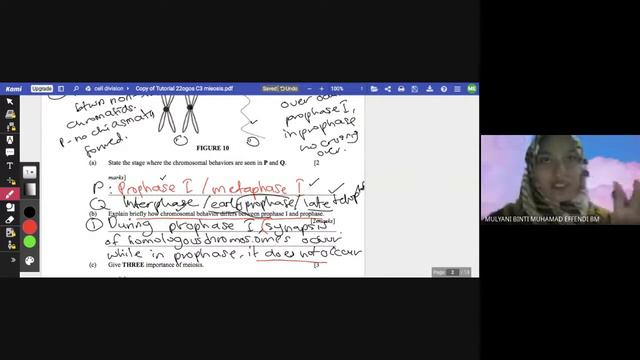 Kami Upgrade cell division > Copy of Tutorial 22ogos C3 mieosis.pdf Saved Undo 100% ME
btwn non-
chromatids.
P- no chiasmata
formed.
over
prophase I,
in prophase
no crossing
over.
FIGURE 10
(a) State the stage where the chromosomal behaviors are seen in P and Q. [2
marks]
P: Prophase I / metaphase I
Q Interphase / early prophase / late telophase
(b) Explain briefly how chromosomal behavior differs between prophase I and prophase.
[2marks]
① During prophase I, synapsis
of homologous chromosomes occur
while in prophase, it does not occur
(c) Give THREE importance of meiosis. [3
Page 2 / 13
MULYANI BINTI MUHAMAD EFFENDI BM